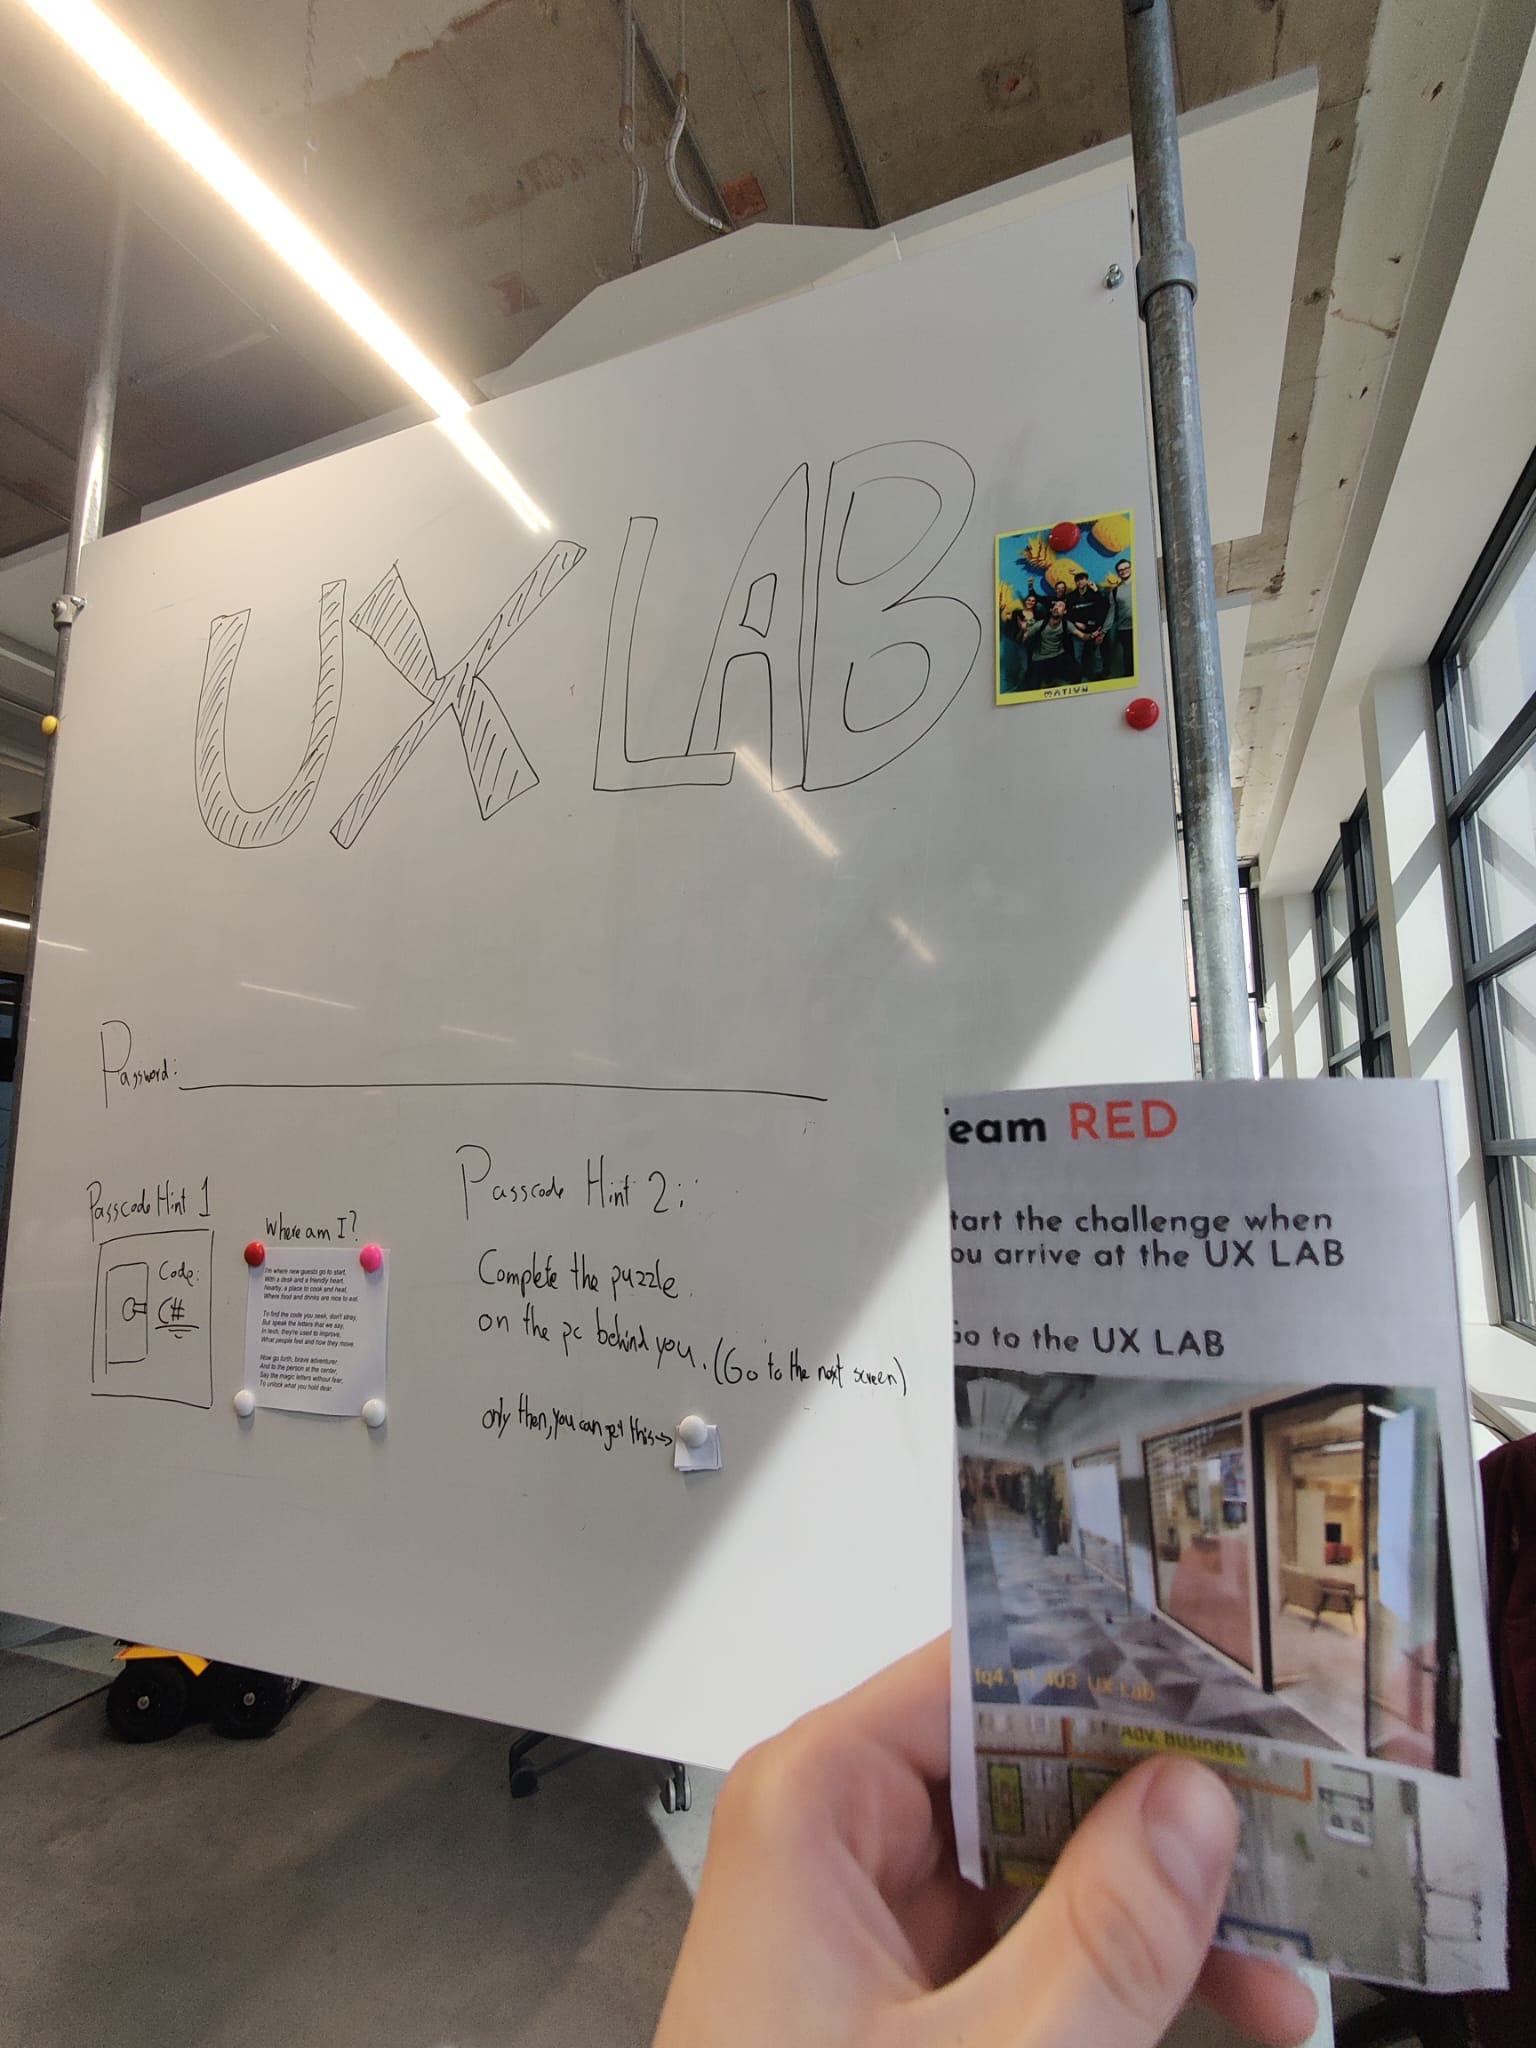 UX LAB
MATIVN
Password:
Passcode Hint 1
Code:
C#
Where am I?
I'm where new guests go to start,
With a desk and a friendly heart.
Nearby, a place to cook and heat,
Where food and drinks are nice to eat.
To find the code you seek, don't stray,
But speak the letters that we say,
In tech, they're used to improve,
What people feel and how they move.
Now go forth, brave adventurer,
And to the person at the center,
Say the magic letters without fear,
To unlock what you hold dear.
Passcode Hint 2:
Complete the puzzle
on the pc behind you. (Go to the next screen)
only then, you can get this→
eam RED
tart the challenge when
ou arrive at the UX LAB
o to the UX LAB
403 UX Lab
Adv. Business